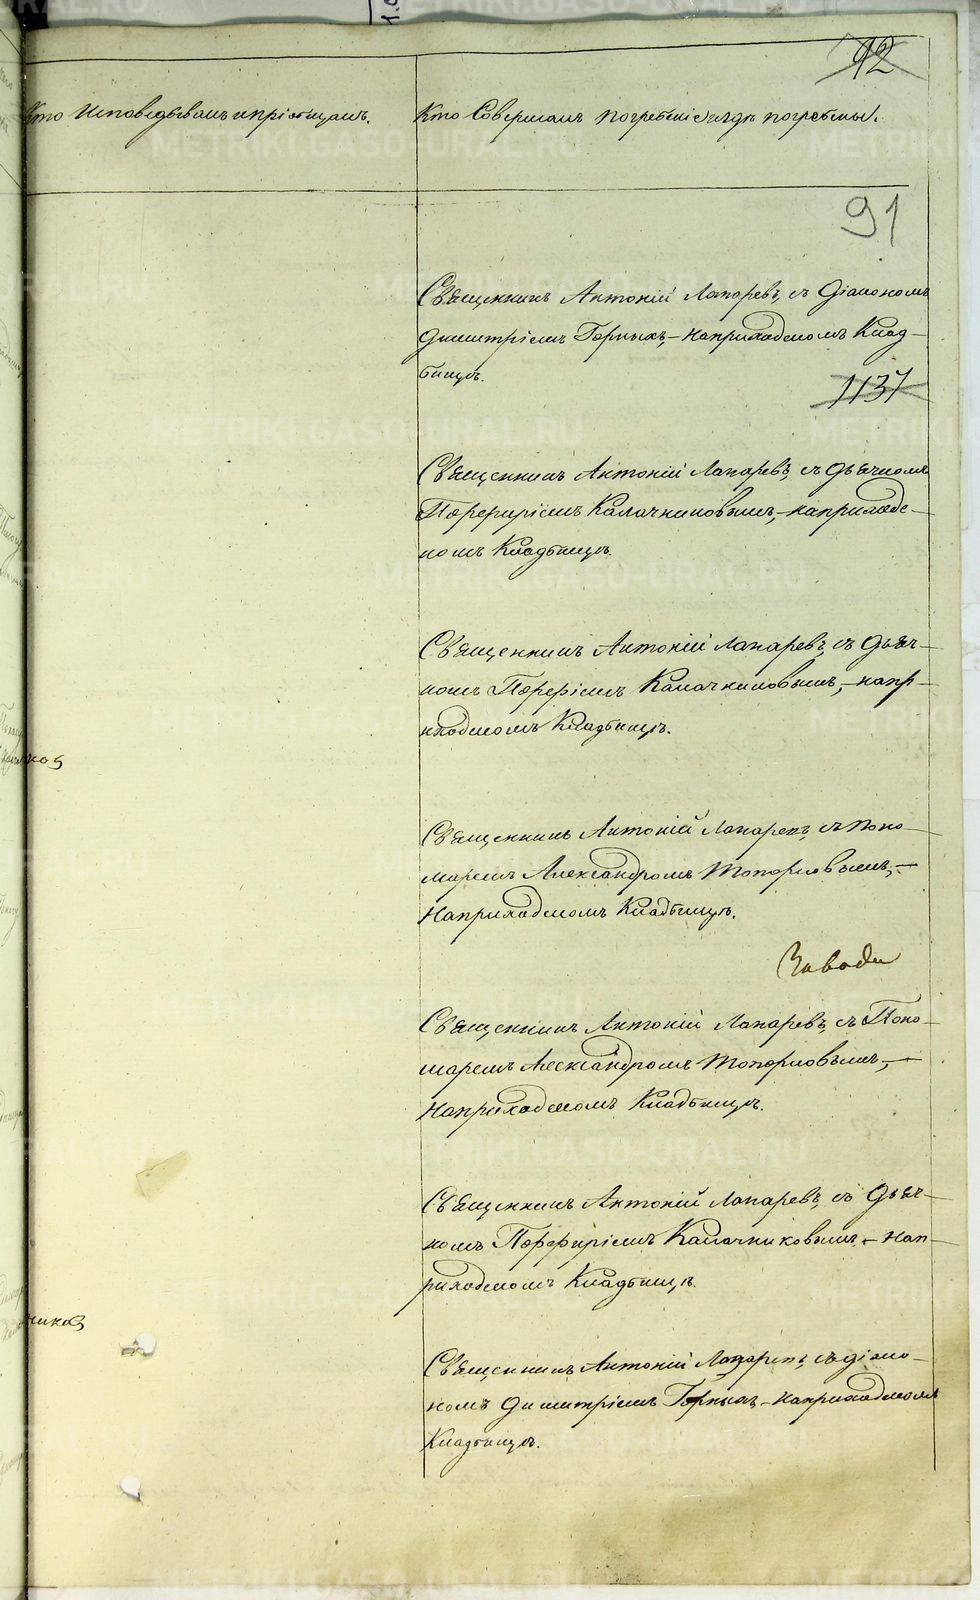 92
Кто Исповѣдывалъ и пріобщалъ.
Кто Совершалъ погребеніе и гдѣ погребены.
91
Священникъ Антоній Лапаревъ, съ Діакономъ
Димитріемъ Горныхъ,– на приходскомъ Клад–
бищѣ.
1137
Священникъ Антоній Лапаревъ, съ дьячкомъ
Порфиріемъ Калачниковымъ,– на приходс–
комъ Кладбищѣ.
Священникъ Антоній Лапаревъ, съ Дьяч–
комъ Порфіемъ Калачниковымъ,– на пр–
иходскомъ Кладбищѣ.
ков
Священникъ Антоній Лапаревъ, съ Поно–
маремъ Александромъ Топорковымъ,–
на приходскомъ Кладбищѣ.
Заводи
Священникъ Антоній Лапаревъ, съ Поно–
маремъ Александромъ Топорковымъ,–
на приходскомъ Кладбищѣ.
Священникъ Антоній Лапаревъ, съ Дьяч–
комъ Порфиріемъ Калачниковымъ – на п–
риходскомъ Кладбищѣ.
чиков
Священникъ Антоній Лапаревъ, съ діако–
номъ Димитріемъ Горныхъ,– на приходскомъ
Кладбищѣ.
METRIKI.GASO-URAL.RU